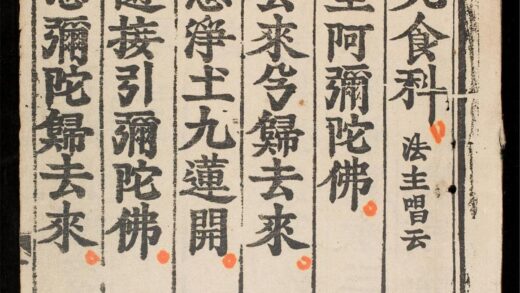 食科 法主唱云
阿彌陀佛
來兮歸去來
淨土九蓮開
接引彌陀佛
彌陀歸去來